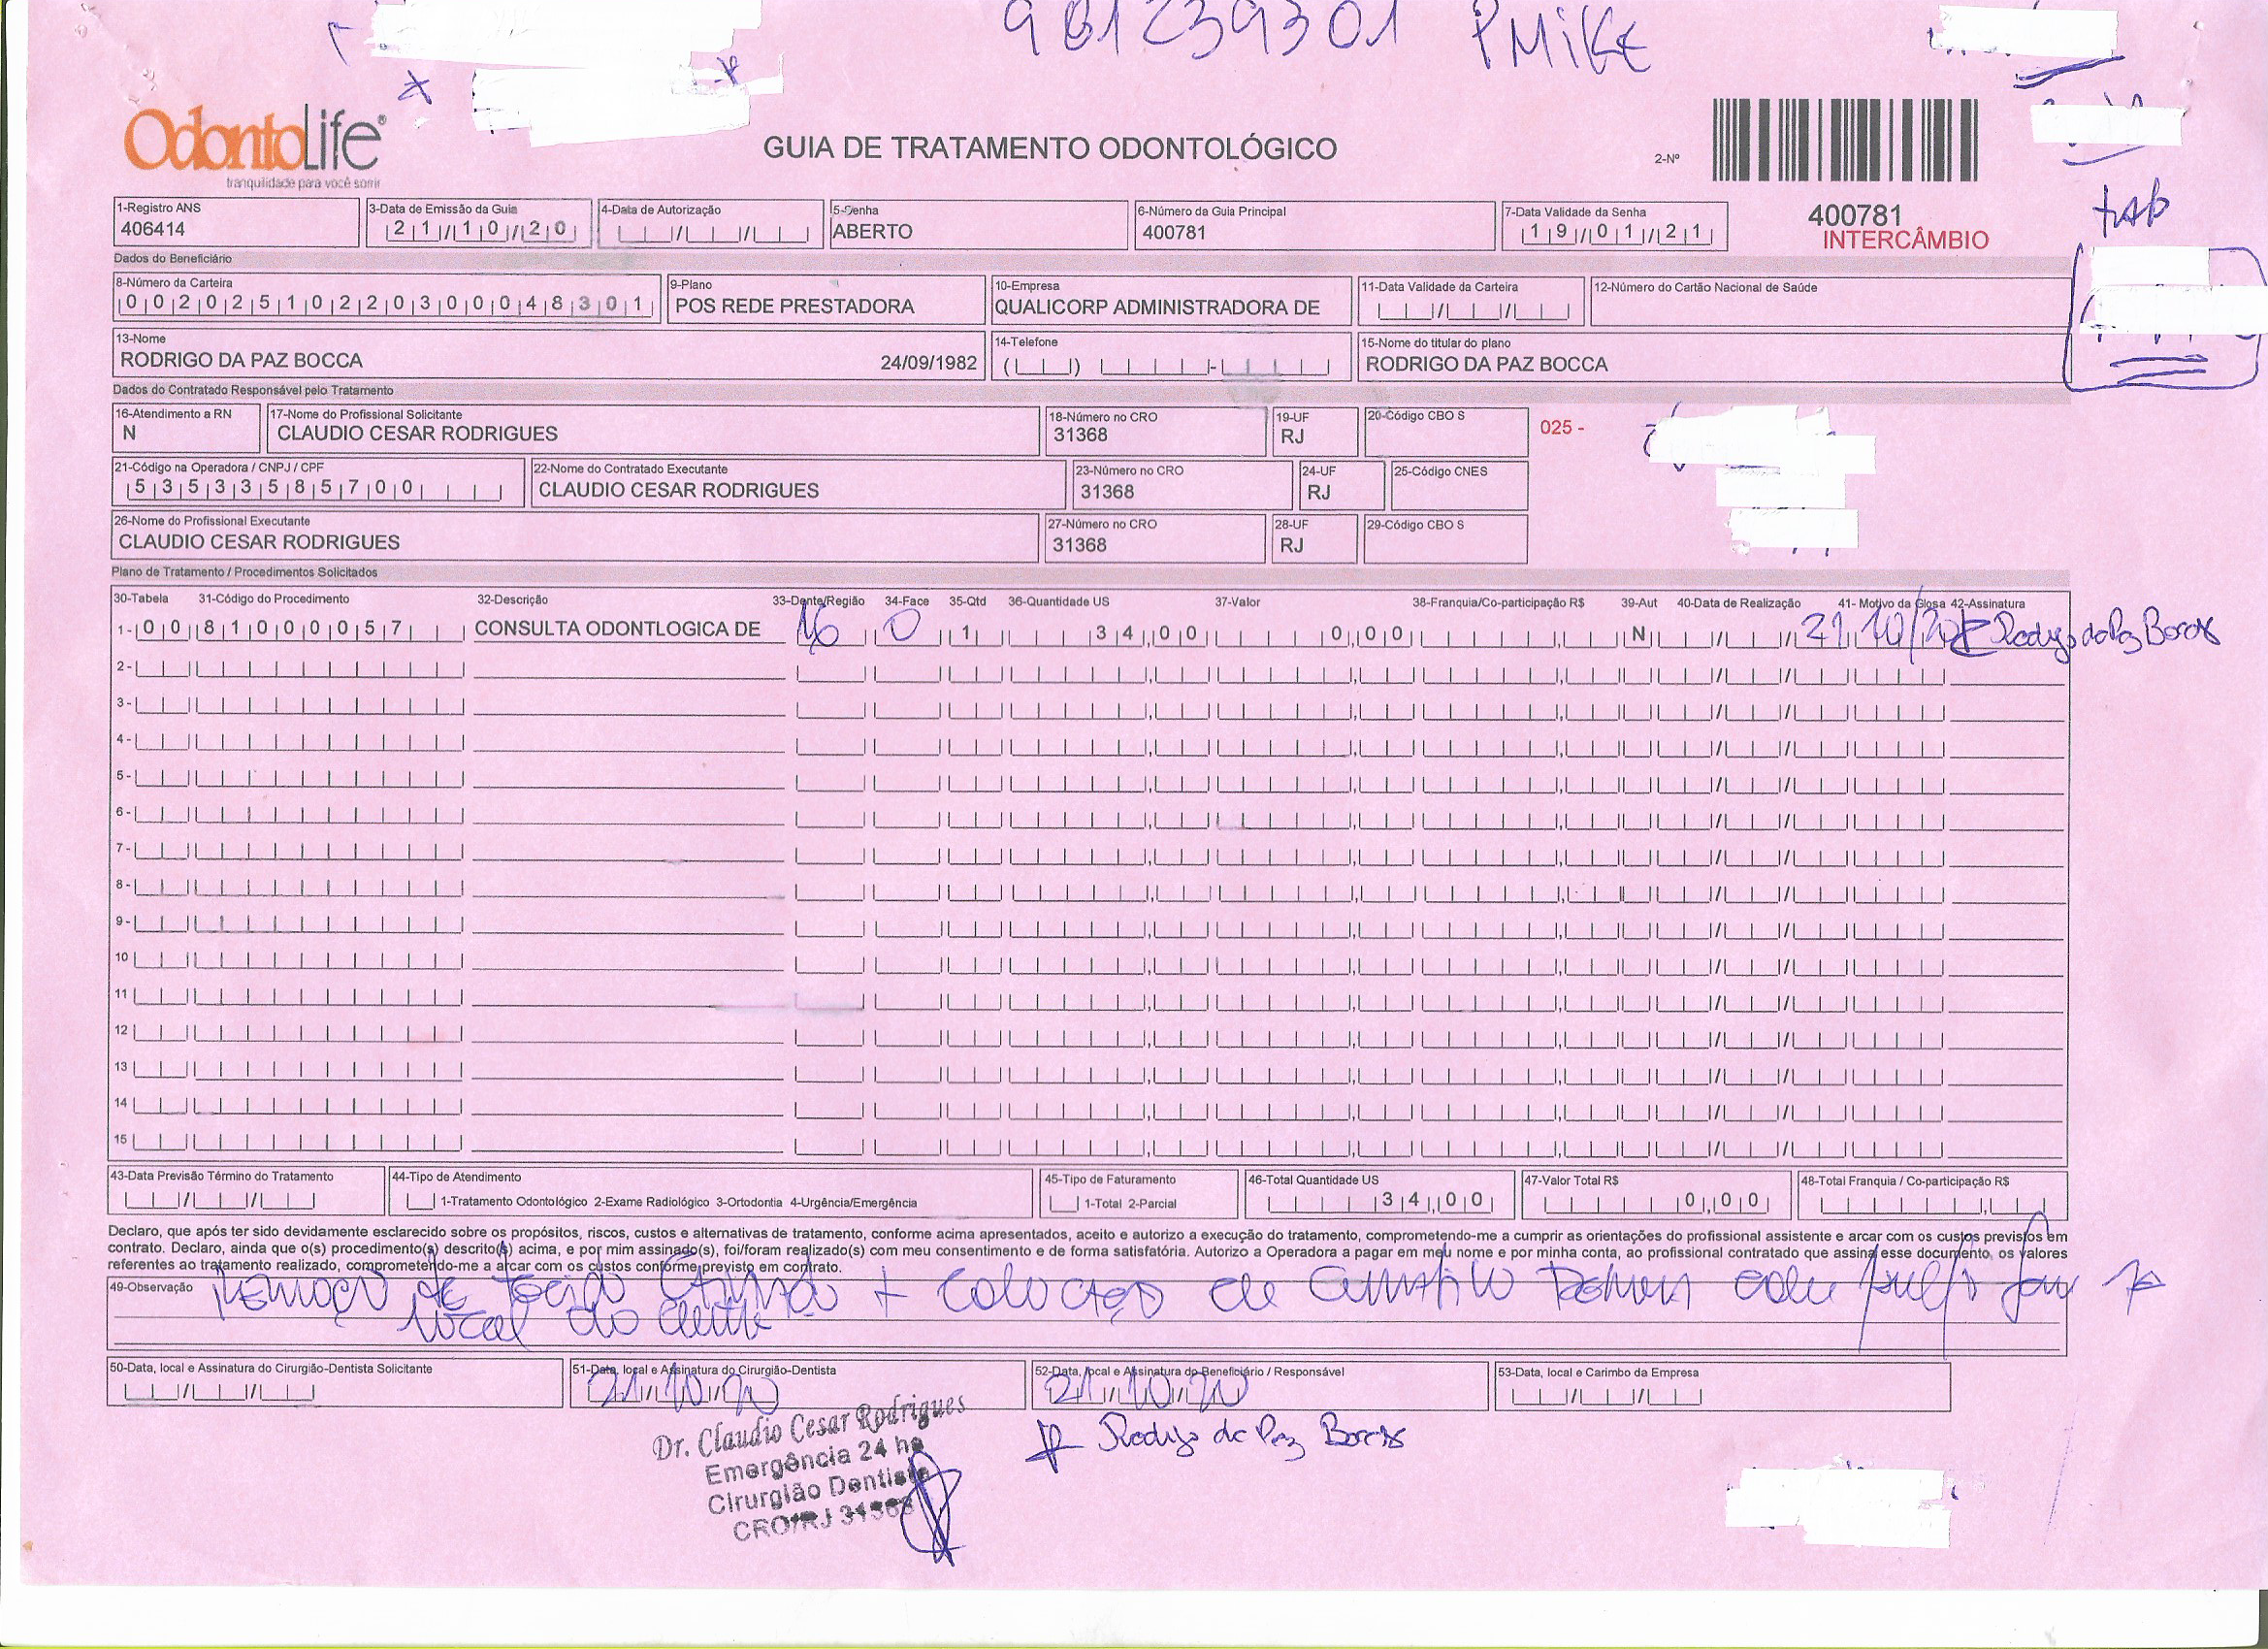 981239301 PMIKE
OdontoLife®
tranquilidade para você sorrir
GUIA DE TRATAMENTO ODONTOLÓGICO
2-Nº
tab
1-Registro ANS
406414
3-Data de Emissão da Guia
21/10/20
4-Data de Autorização
5-Senha
ABERTO
6-Número da Guia Principal
400781
7-Data Validade da Senha
19/01/21
400781
INTERCÂMBIO
Dados do Beneficiário
8-Número da Carteira
00202510220300048301
9-Plano
POS REDE PRESTADORA
10-Empresa
QUALICORP ADMINISTRADORA DE
11-Data Validade da Carteira
12-Número do Cartão Nacional de Saúde
13-Nome
RODRIGO DA PAZ BOCCA 24/09/1982
14-Telefone
15-Nome do titular do plano
RODRIGO DA PAZ BOCCA
Dados do Contratado Responsável pelo Tratamento
16-Atendimento a RN
N
17-Nome do Profissional Solicitante
CLAUDIO CESAR RODRIGUES
18-Número no CRO
31368
19-UF
RJ
20-Código CBO S
025 -
21-Código na Operadora / CNPJ / CPF
53533585700
22-Nome do Contratado Executante
CLAUDIO CESAR RODRIGUES
23-Número no CRO
31368
24-UF
RJ
25-Código CNES
26-Nome do Profissional Executante
CLAUDIO CESAR RODRIGUES
27-Número no CRO
31368
28-UF
RJ
29-Código CBO S
Plano de Tratamento / Procedimentos Solicitados
30-Tabela 31-Código do Procedimento 32-Descrição 33-Dente/Região 34-Face 35-Qtd 36-Quantidade US 37-Valor 38-Franquia/Co-participação R$ 39-Aut 40-Data de Realização 41- Motivo da Glosa 42-Assinatura
1- 00 81000057 CONSULTA ODONTLOGICA DE 16 O 1 34,00 0,00 N 21/10/20 Rodrigo da Paz Bocca
2-
3-
4-
5-
6-
7-
8-
9-
10
11
12
13
14
15
43-Data Previsão Término do Tratamento
44-Tipo de Atendimento
1-Tratamento Odontológico 2-Exame Radiológico 3-Ortodontia 4-Urgência/Emergência
45-Tipo de Faturamento
1-Total 2-Parcial
46-Total Quantidade US
34,00
47-Valor Total R$
0,00
48-Total Franquia / Co-participação R$
Declaro, que após ter sido devidamente esclarecido sobre os propósitos, riscos, custos e alternativas de tratamento, conforme acima apresentados, aceito e autorizo a execução do tratamento, comprometendo-me a cumprir as orientações do profissional assistente e arcar com os custos previstos em
contrato. Declaro, ainda que o(s) procedimento(s) descrito(s) acima, e por mim assinado(s), foi/foram realizado(s) com meu consentimento e de forma satisfatória. Autorizo a Operadora a pagar em meu nome e por minha conta, ao profissional contratado que assina esse documento, os valores
referentes ao tratamento realizado, comprometendo-me a arcar com os custos conforme previsto em contrato.
49-Observação Remoção de tecido + colocação de curativo
local do dente
50-Data, local e Assinatura do Cirurgião-Dentista Solicitante
51-Data, local e Assinatura do Cirurgião-Dentista
21/10/20
52-Data, local e Assinatura do Beneficiário / Responsável
21/10/20
53-Data, local e Carimbo da Empresa
Dr. Claudio Cesar Rodrigues
Emergência 24 hs
Cirurgião Dentista
CRO/RJ 31368
Rodrigo da Paz Bocca